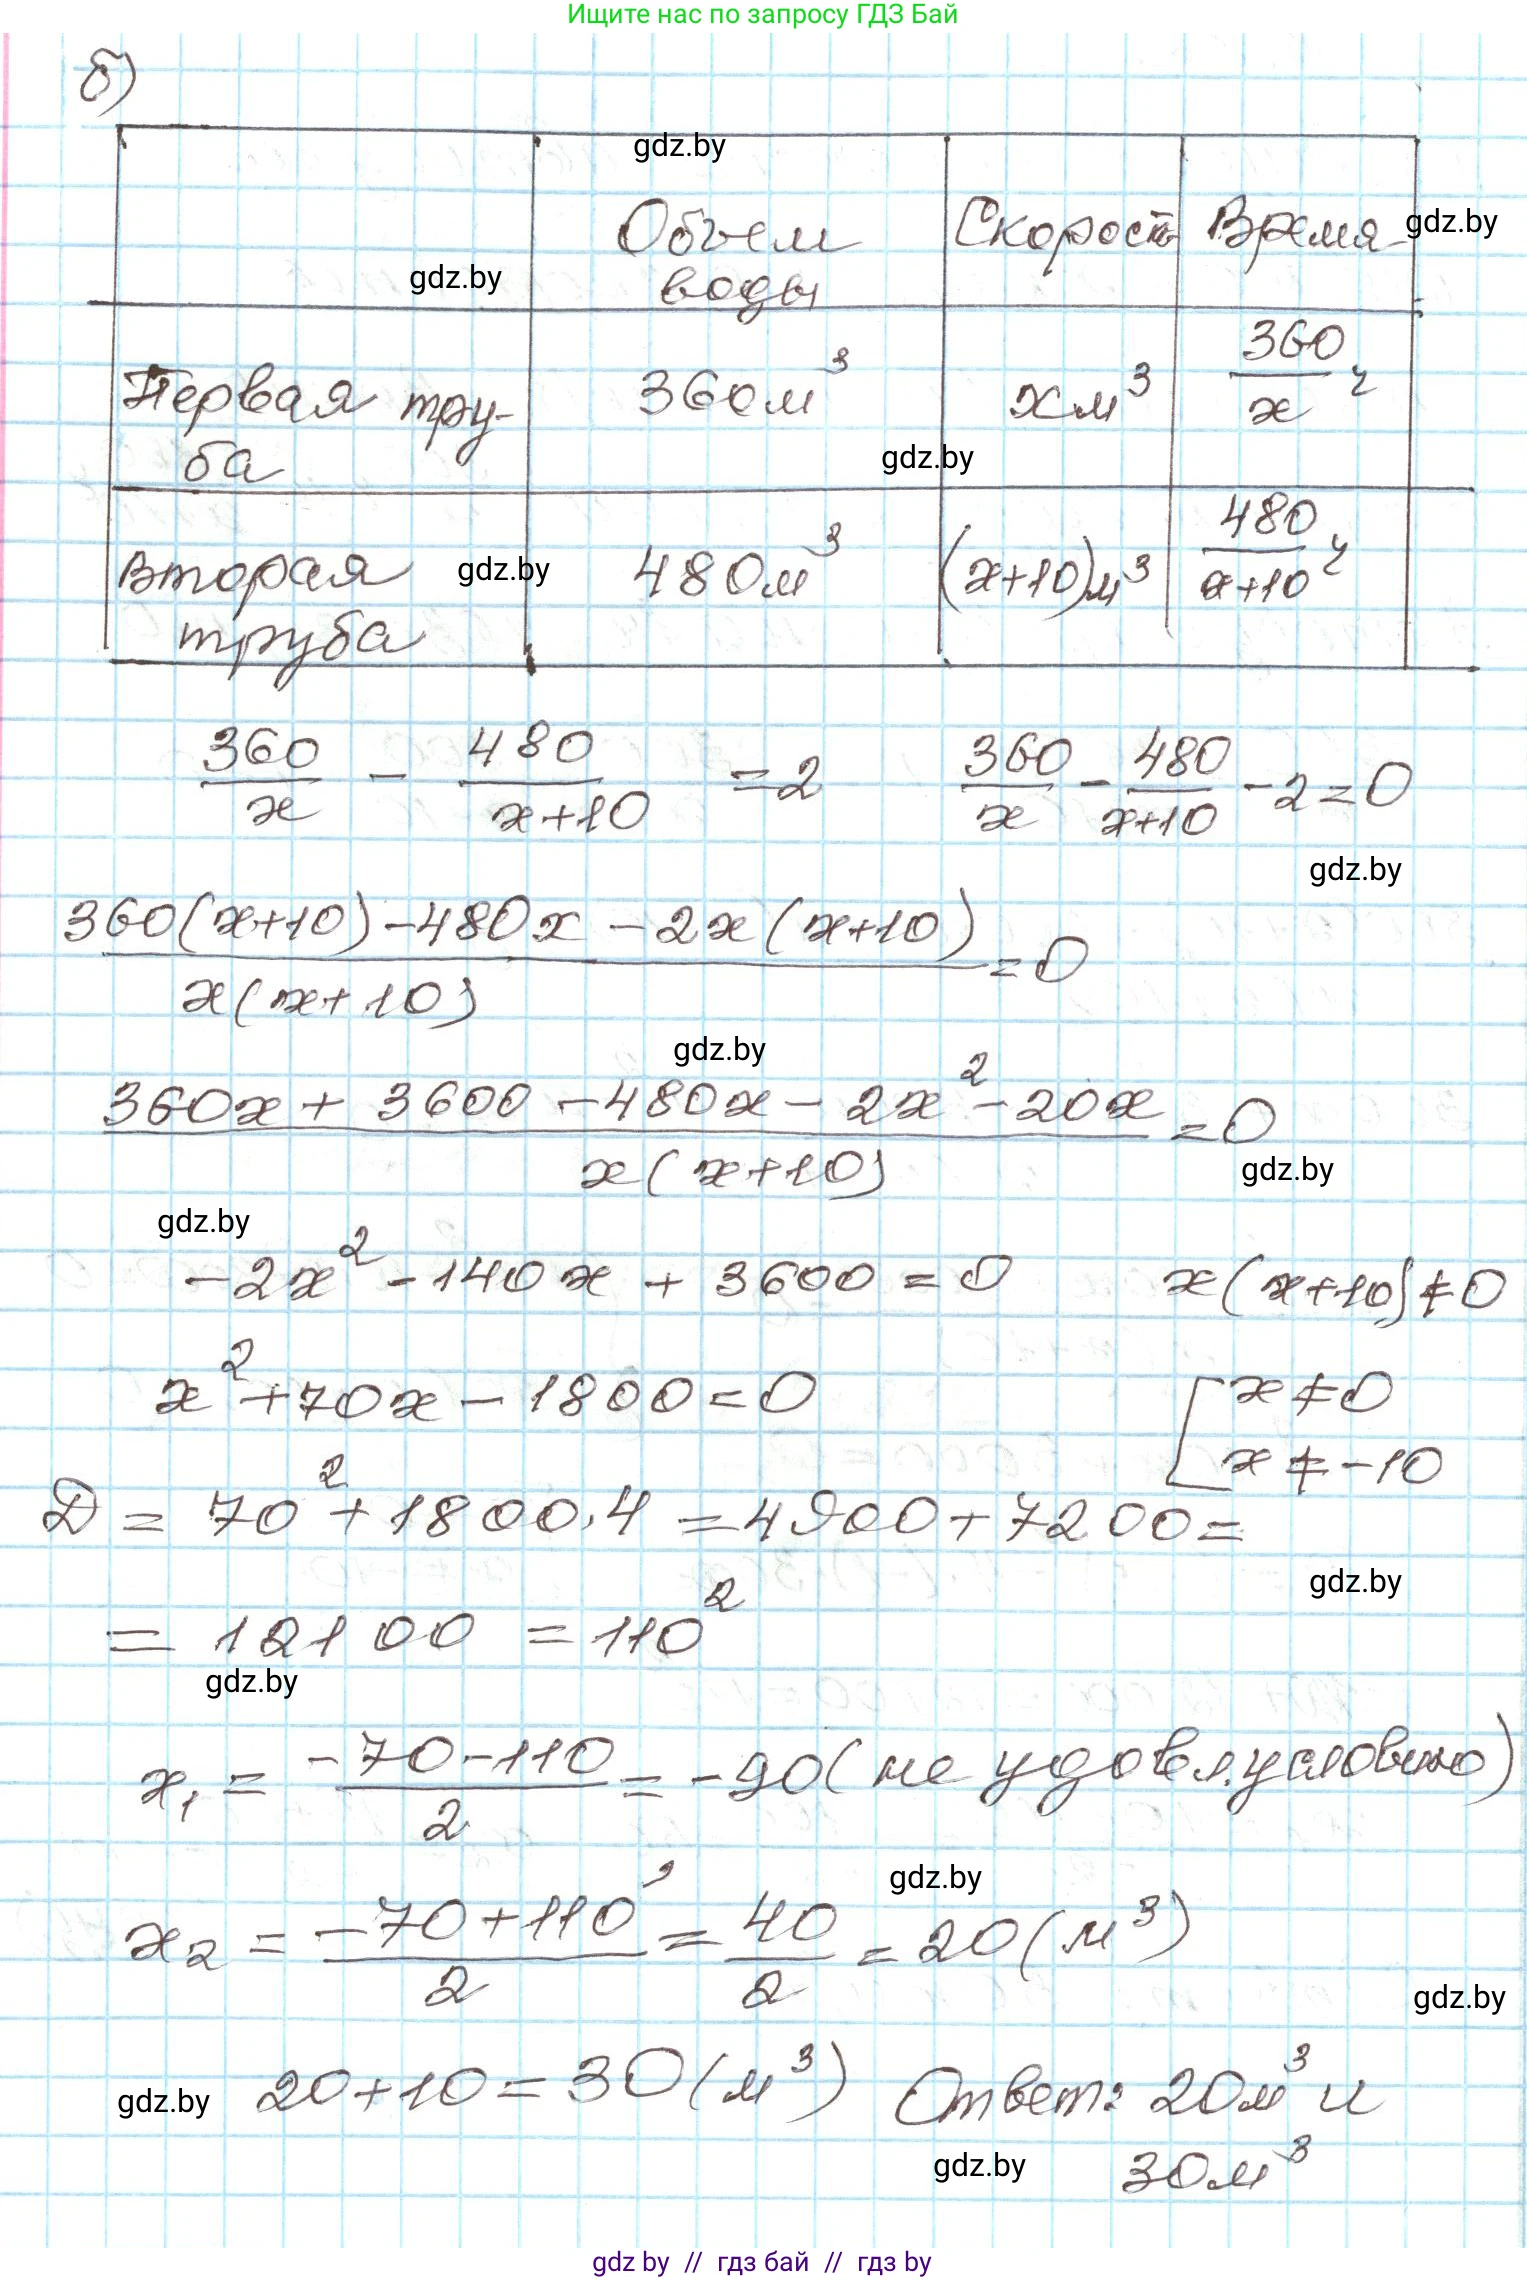 Ищите нас по запросу ГДЗ Бай
б)
gdz.by
Объем воды Скорость Время gdz.by
gdz.by
Первая труба 360м³ xм³ 360/x ч
gdz.by
вторая труба gdz.by 480м³ (x+10)м³ 480/x+10 ч
360/x - 480/x+10 = 2 360/x - 480/x+10 - 2 = 0
gdz.by
360(x+10) - 480x - 2x(x+10) / x(x+10) = 0
gdz.by
360x + 3600 - 480x - 2x² - 20x / x(x+10) = 0
gdz.by
gdz.by
-2x² - 140x + 3600 = 0 x(x+10) ≠ 0
x² + 70x - 1800 = 0 [ x ≠ 0
x ≠ -10
D = 70² + 1800·4 = 4900 + 7200 =
gdz.by
= 12100 = 110²
gdz.by
x₁ = -70-110 / 2 = -90 (не удовл. условию)
gdz.by
x₂ = -70+110 / 2 = 40/2 = 20 (м³)
gdz.by
gdz.by 20+10 = 30 (м³) Ответ: 20м³ и
gdz.by 30м³
gdz by // гдз бай // гдз by